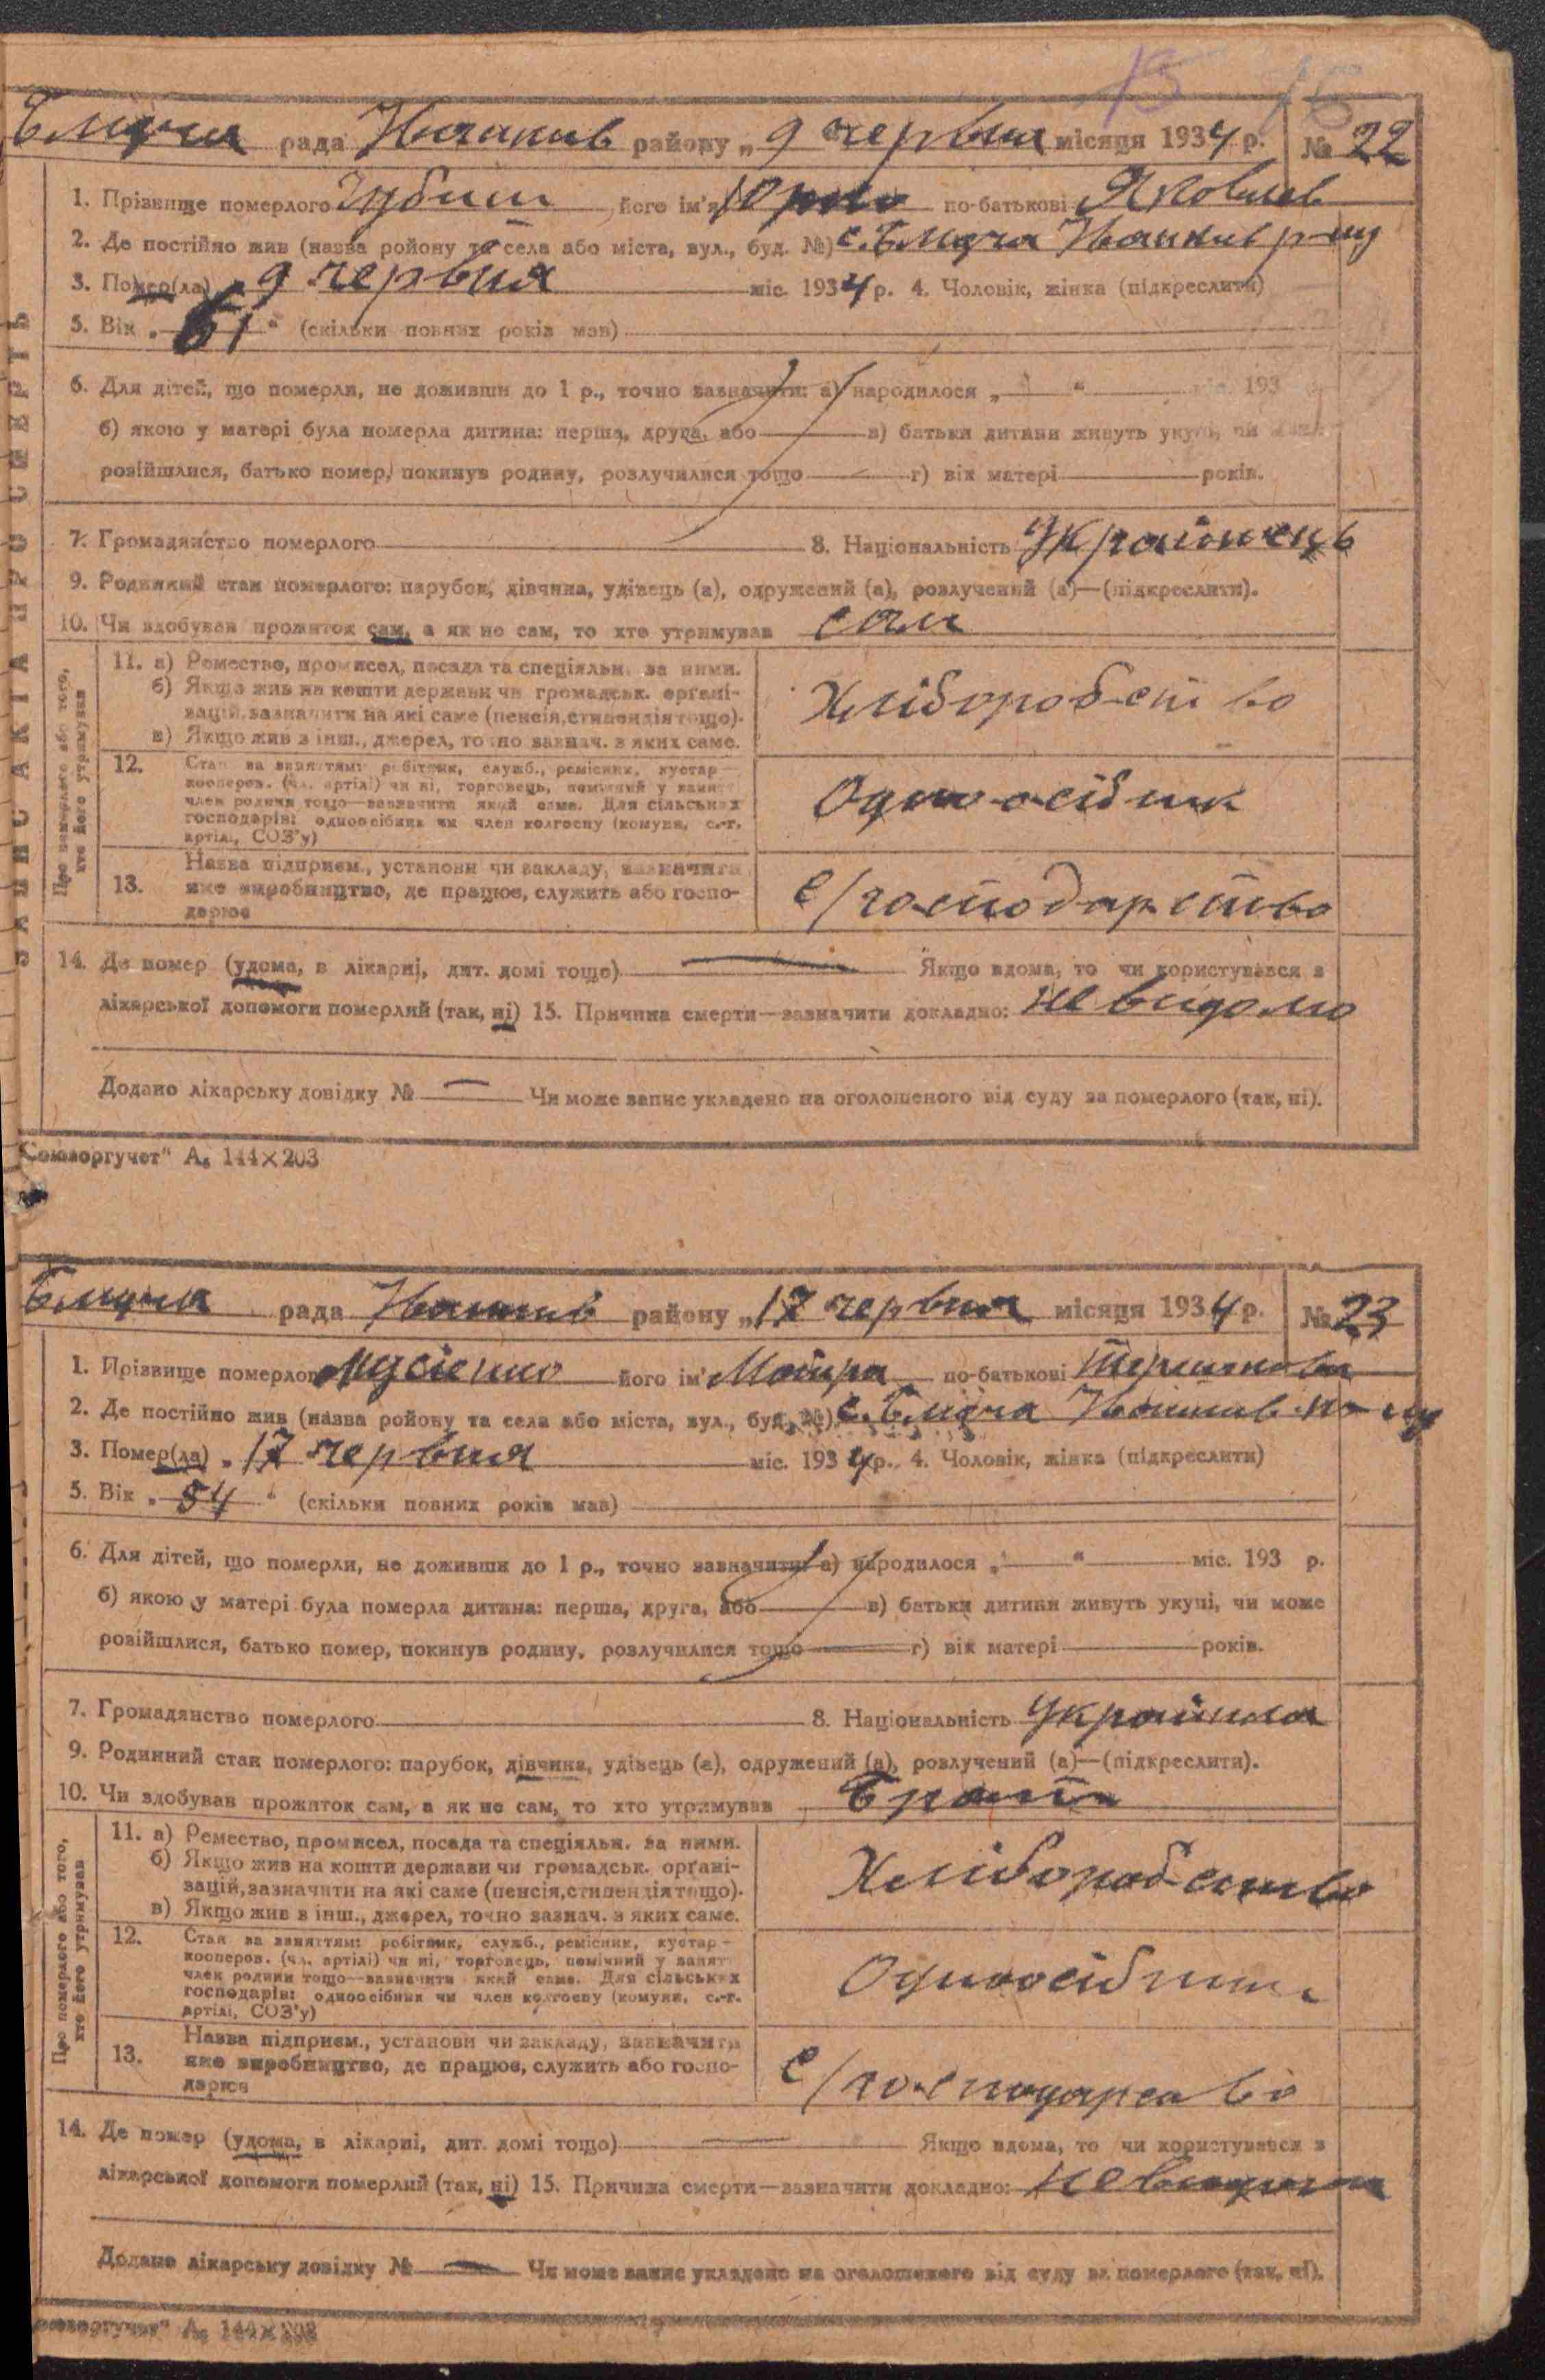 15 16
рада Іванків району „ 9 червня місяця 1934 р. № 22
1. Прізвище померлого його ім'я Юрко по-батькові Яковлев
2. Де постійно жив (назва ройону та села або міста, вул., буд. №) с. Блидча Іванків р-ну
3. Помер(ла) „ 9 червня міс. 1934 р. 4. Чоловік, жінка (підкреслити)
5. Вік „ 61 “ (скільки повних років мав)
6. Для дітей, що померли, не доживши до 1 р., точно зазначити: а) народилося „ “ міс. 193
б) якою у матері була померла дитина: перша, друга, або в) батьки дитини живуть укупі, чи може
розійшлися, батько помер, покинув родину, розлучилися тощо г) вік матері років.
7. Громадянство померлого 8. Національність Українець
9. Родинний стан померлого: парубок, дівчина, удівець (а), одружений (а), розлучений (а)—(підкреслити).
10. Чи здобував прожиток сам, а як не сам, то хто утримував сам
ЗАПИС АКТА ПРО СМЕРТЬ
Про померлого або того, хто його утримував
11. а) Ремество, промисел, посада та спеціяльн. за ними.
б) Якщо жив на кошти держави чи громадськ. органі-
зацій, зазначити на які саме (пенсія, стипендія тощо).
в) Якщо жив з інш., джерел, точно зазнач. з яких саме.
Хліборобство
12. Стан за заняттям: робітник, служб., ремісник, кустар—
кооперов. (чл. артілі) чи ні, торговець, помічний у занятт
член родини тощо—зазначити який саме. Для сільських
господарів: одноосібник чи член колгоспу (комуни, с.-г.
артілі, СОЗ'у)
Одноосібник
Назва підприєм., установи чи закладу, зазначити
13. яке виробництво, де працює, служить або госпо-
дарює
С/господарство
14. Де помер (удома, в лікарні, дит. домі тощо) Якщо вдома, то чи користувався з
лікарської допомоги померлий (так, ні) 15. Причина смерти—зазначити докладно: невидомо
Додано лікарську довідку № — Чи може запис укладено на оголошеного від суду за померлого (так, ні).
Союзоргучет" А₅ 144×203
рада Іванків району „ 17 червня місяця 1934 р. № 23
1. Прізвище померлого Мусієнко його ім'я по-батькові
2. Де постійно жив (назва ройону та села або міста, вул., буд. №) с. Блидча Іванків р-ну
3. Помер(ла) „ 17 червня міс. 1934 р. 4. Чоловік, жінка (підкреслити)
5. Вік „ 54 “ (скільки повних років мав)
6. Для дітей, що померли, не доживши до 1 р., точно зазначити: а) народилося „ “ міс. 193 р.
б) якою у матері була померла дитина: перша, друга, або в) батьки дитини живуть укупі, чи може
розійшлися, батько помер, покинув родину, розлучилися тощо г) вік матері років.
7. Громадянство померлого 8. Національність Українка
9. Родинний стан померлого: парубок, дівчина, удівець (а), одружений (а), розлучений (а)—(підкреслити).
10. Чи здобував прожиток сам, а як не сам, то хто утримував Брат
Про померлого або того, хто його утримував
11. а) Ремество, промисел, посада та спеціяльн. за ними.
б) Якщо жив на кошти держави чи громадськ. органі-
зацій, зазначити на які саме (пенсія, стипендія тощо).
в) Якщо жив в інш., джерел, точно зазнач. з яких саме.
Хліборобство
12. Стан за заняттям: робітник, служб., ремісник, кустар—
кооперов. (чл. артілі) чи ні, торговець, помічний у занят
член родини тощо—зазначити який саме. Для сільських
господарів: одноосібник чи член колгоспу (комуни, с.-г.
артілі, СОЗ'у)
Одноосібник
Назва підприєм., установи чи закладу, зазначити
13. яке виробництво, де працює, служить або госпо-
дарює
С/господарство
14. Де помер (удома, в лікарні, дит. домі тощо) Якщо вдома, то чи користувався з
лікарської допомоги померлий (так, ні) 15. Причина смерти—зазначити докладно: невидомо
Додано лікарську довідку № — Чи може запис укладено на оголошеного від суду за померлого (так, ні).
Союзоргучет" А₅ 144×203